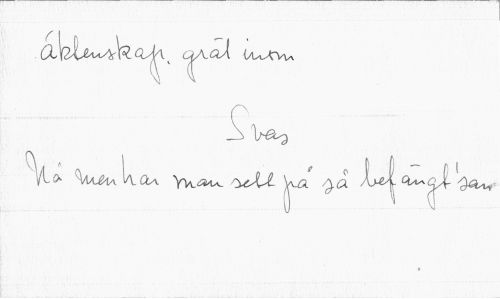 äktenskap, gräl inom
Svar
Nå men har man sett på så befängt' sa